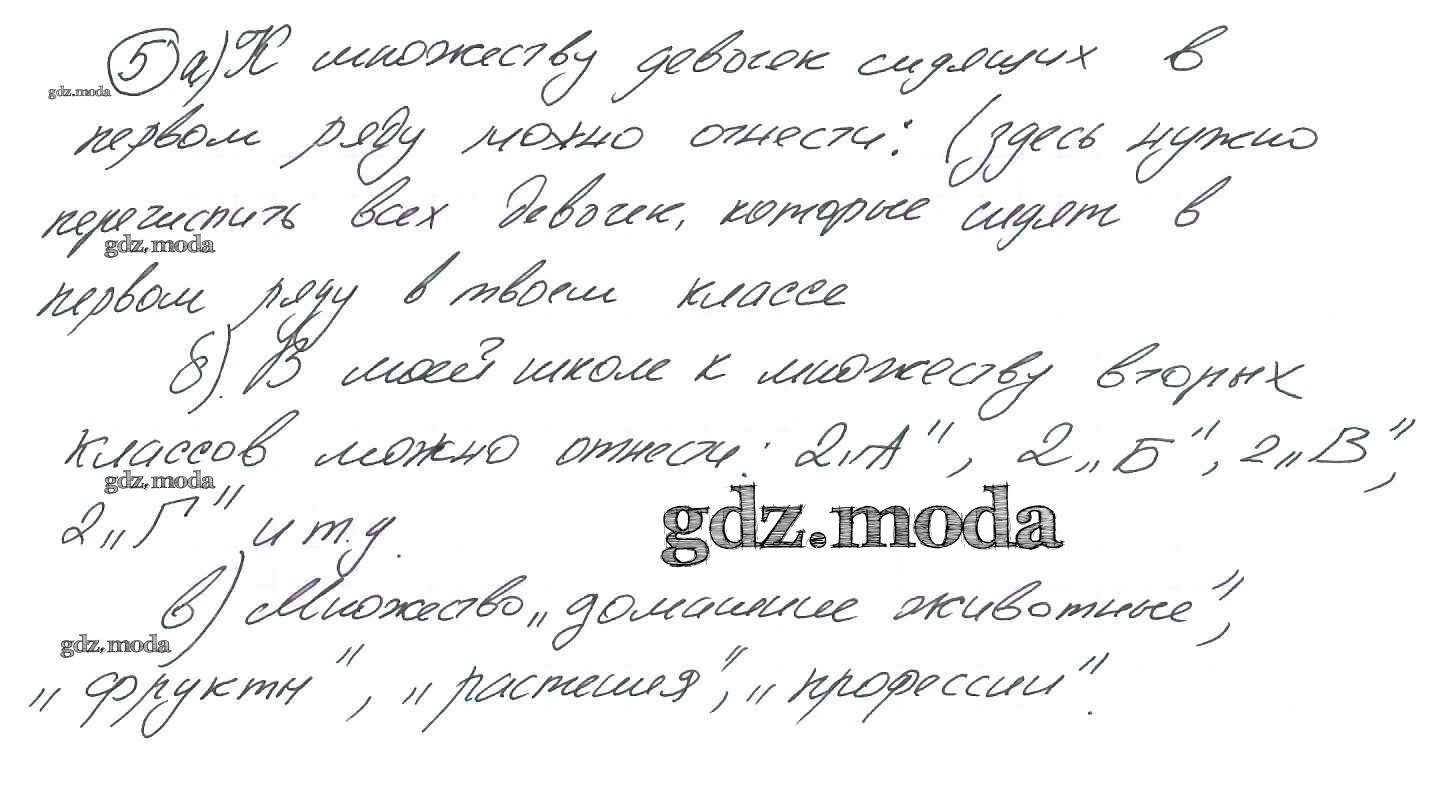 5 а) К множеству девочек сидящих в
gdz.moda
первом ряду можно отнести: (здесь нужно
перечислить всех девочек, которые сидят в
gdz.moda
первом ряду в твоем классе
б). В моей школе к множеству вторых
классов можно отнести: 2„А", 2„Б", 2„В",
gdz.moda
gdz.moda
2„Г" и т.д.
в) Множество „домашние животные",
gdz.moda
„фрукты", „растения", „профессии".